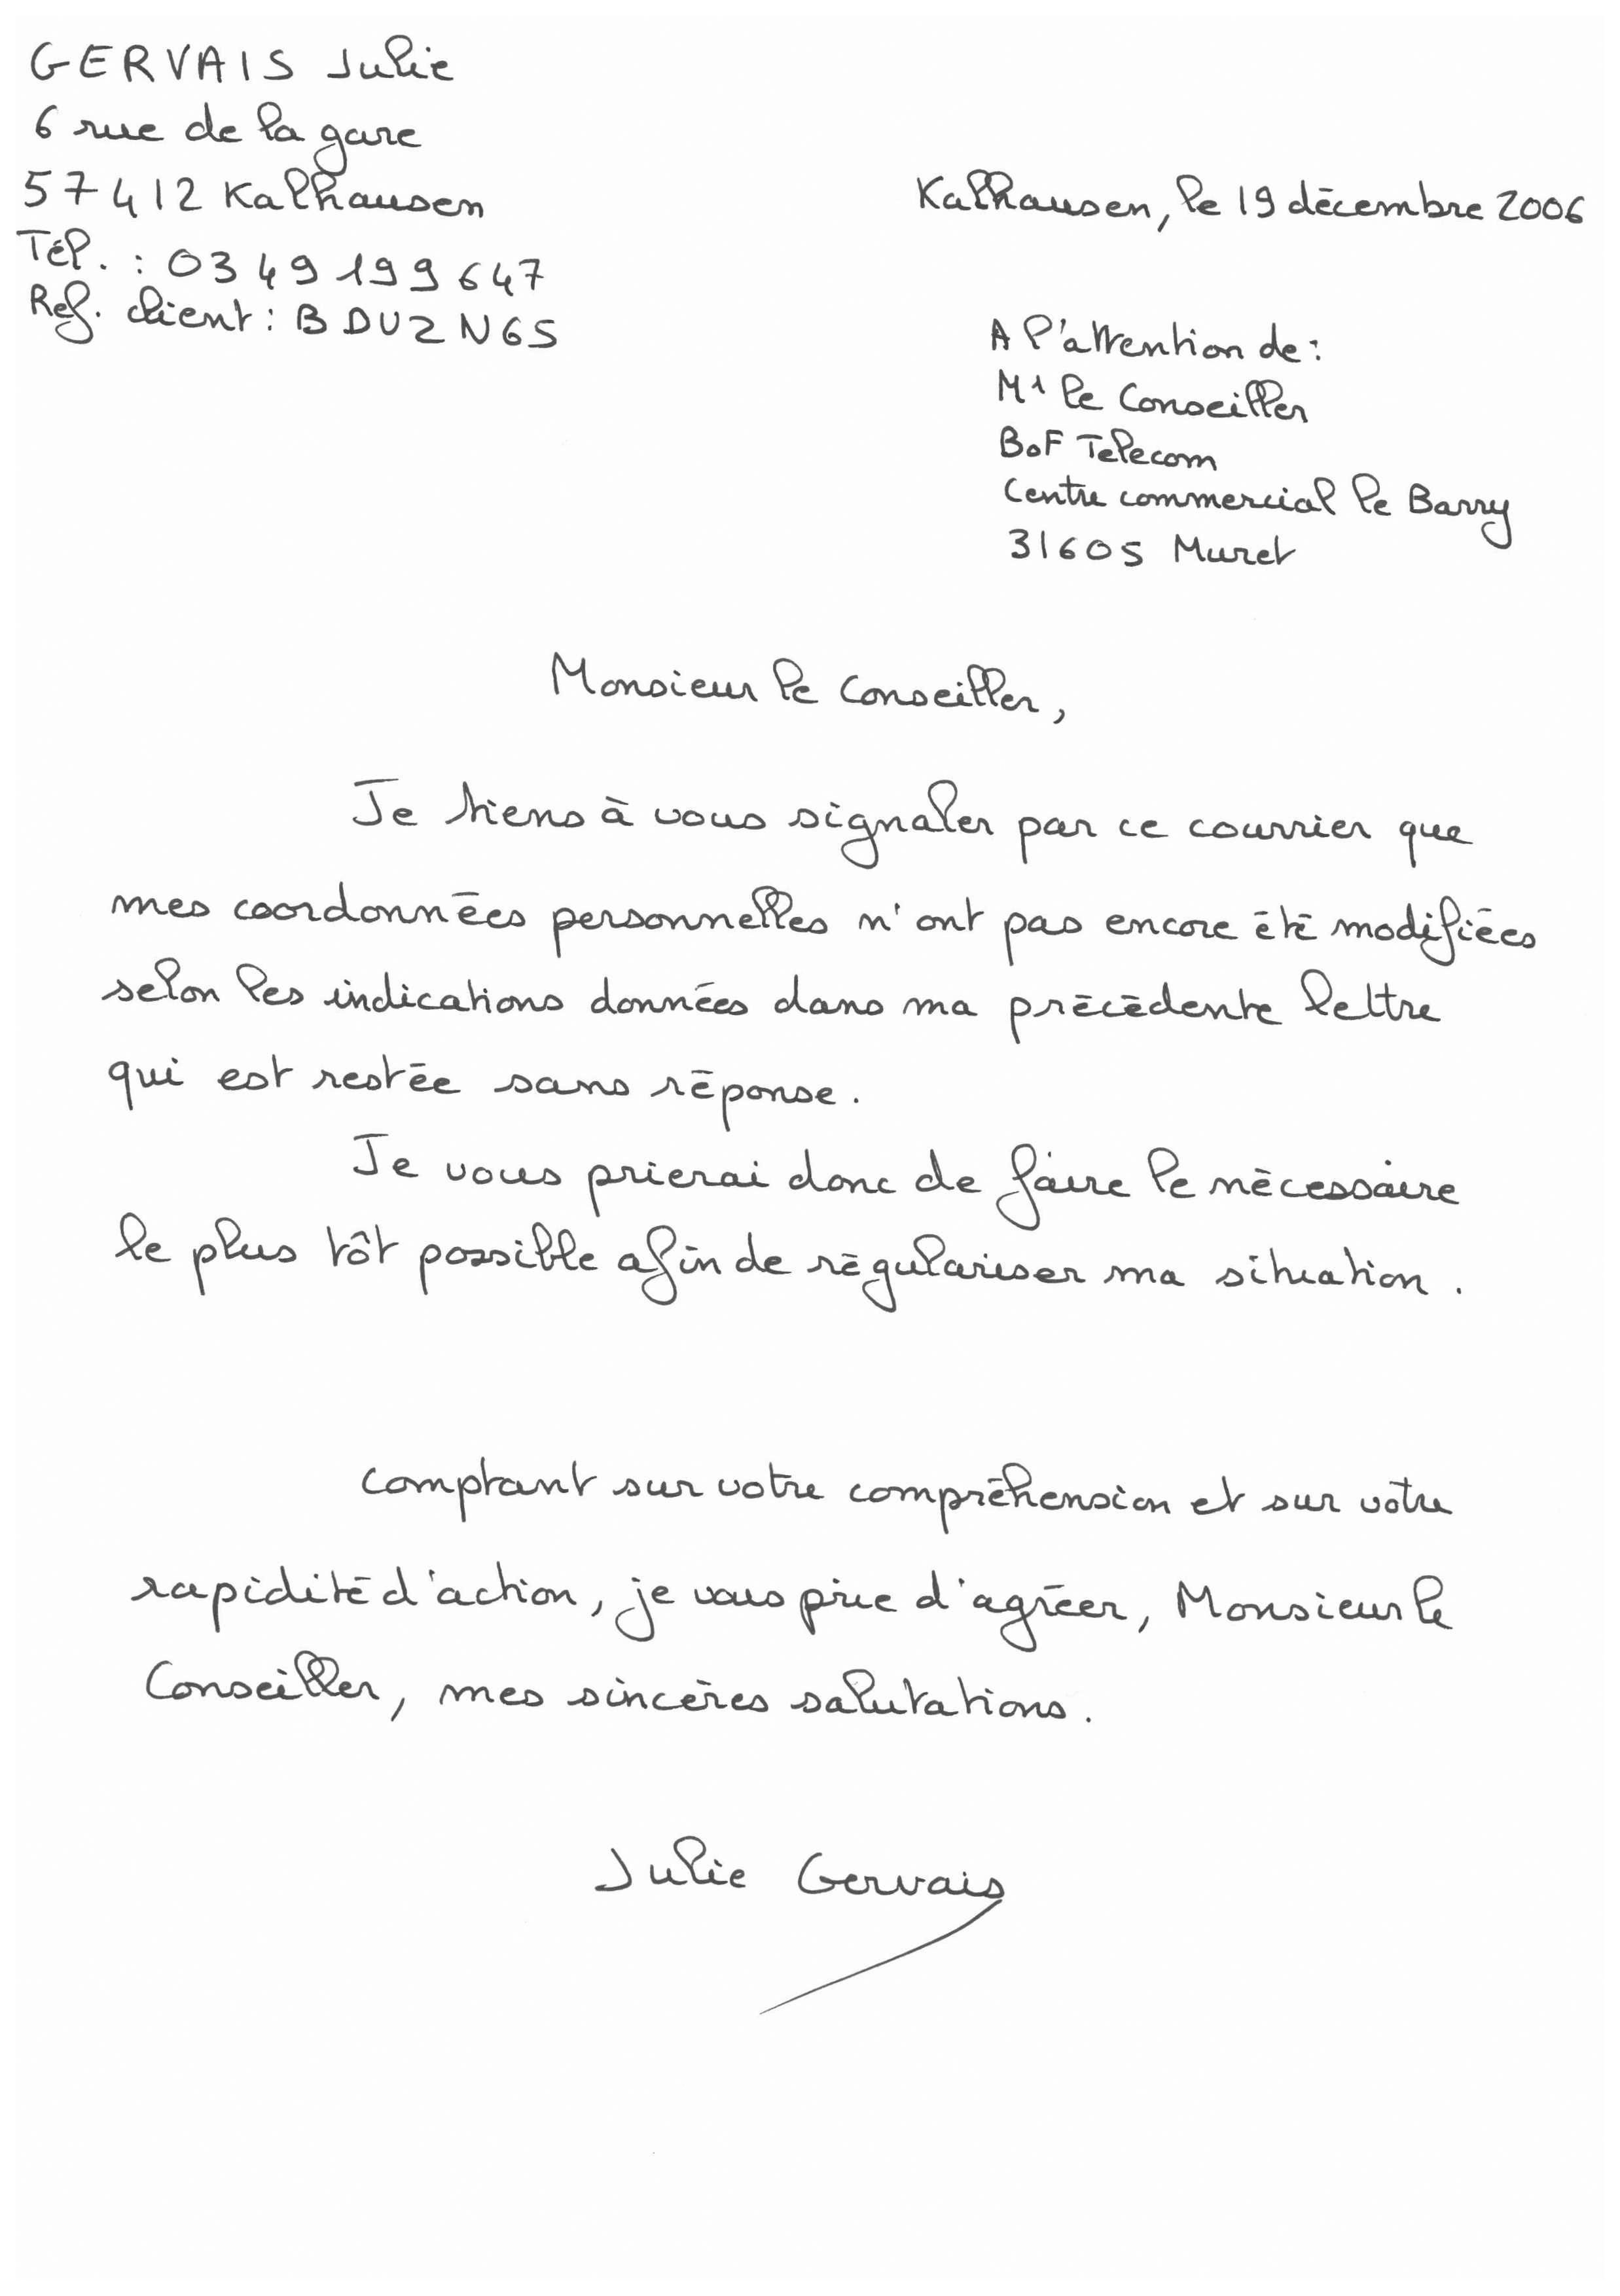 GERVAIS Julie
6 rue de la gare
57412 Kalhausen
Tél. : 03 49 199 647
Ref. client : BDUZN6S
Kalhausen, le 19 décembre 2006
A l'attention de :
Mr le Conseiller
BoF Telecom
Centre commercial le Barry
31605 Muret
Monsieur le Conseiller,
Je tiens à vous signaler par ce courrier que
mes coordonnées personnelles n'ont pas encore été modifiées
selon les indications données dans ma précédente lettre
qui est restée sans réponse.
Je vous prierai donc de faire le nécessaire
le plus tôt possible afin de régulariser ma situation.
Comptant sur votre compréhension et sur votre
rapidité d'action, je vous prie d'agréer, Monsieur le
Conseiller, mes sincères salutations.
Julie Gervais